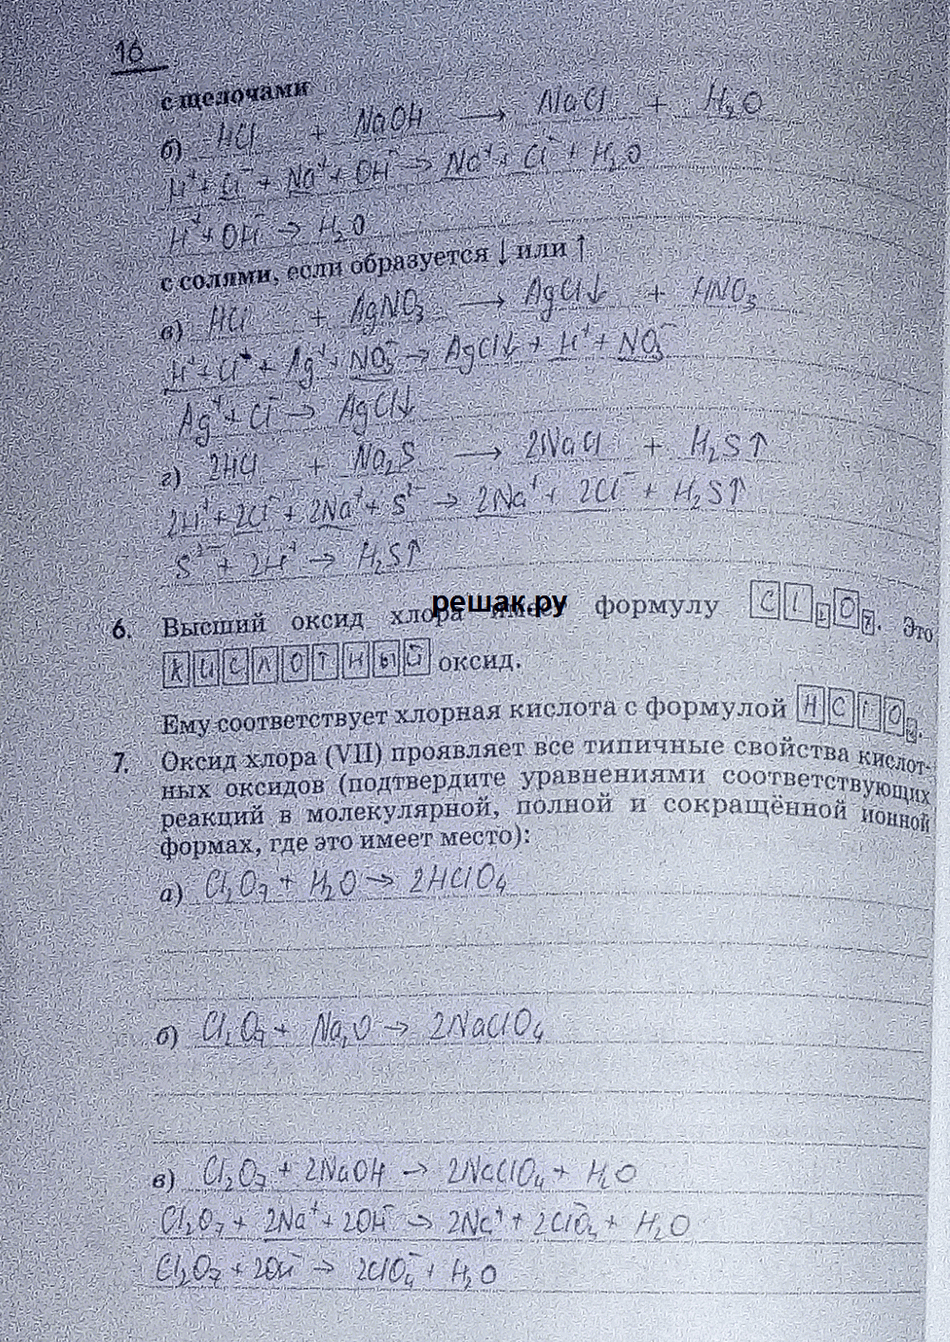 16
с щелочами
б) HCl + NaOH → NaCl + H₂O
H⁺ + Cl⁻ + Na⁺ + OH⁻ → Na⁺ + Cl⁻ + H₂O
H⁺ + OH⁻ → H₂O
с солями, если образуется ↓ или ↑
в) HCl + AgNO₃ → AgCl↓ + HNO₃
H⁺ + Cl⁻ + Ag⁺ + NO₃⁻ → AgCl↓ + H⁺ + NO₃⁻
Ag⁺ + Cl⁻ → AgCl↓
г) 2HCl + Na₂S → 2NaCl + H₂S↑
2H⁺ + 2Cl⁻ + 2Na⁺ + S²⁻ → 2Na⁺ + 2Cl⁻ + H₂S↑
S²⁻ + 2H⁺ → H₂S↑
решак.ру
6. Высший оксид хлора имеет формулу Cl₂O₇. Это
кислотный оксид.
Ему соответствует хлорная кислота с формулой HClO₄.
7. Оксид хлора (VII) проявляет все типичные свойства кислот-
ных оксидов (подтвердите уравнениями соответствующих
реакций в молекулярной, полной и сокращённой ионной
формах, где это имеет место):
а) Cl₂O₇ + H₂O → 2HClO₄
б) Cl₂O₇ + Na₂O → 2NaClO₄
в) Cl₂O₇ + 2NaOH → 2NaClO₄ + H₂O
Cl₂O₇ + 2Na⁺ + 2OH⁻ → 2Na⁺ + 2ClO₄⁻ + H₂O
Cl₂O₇ + 2OH⁻ → 2ClO₄⁻ + H₂O